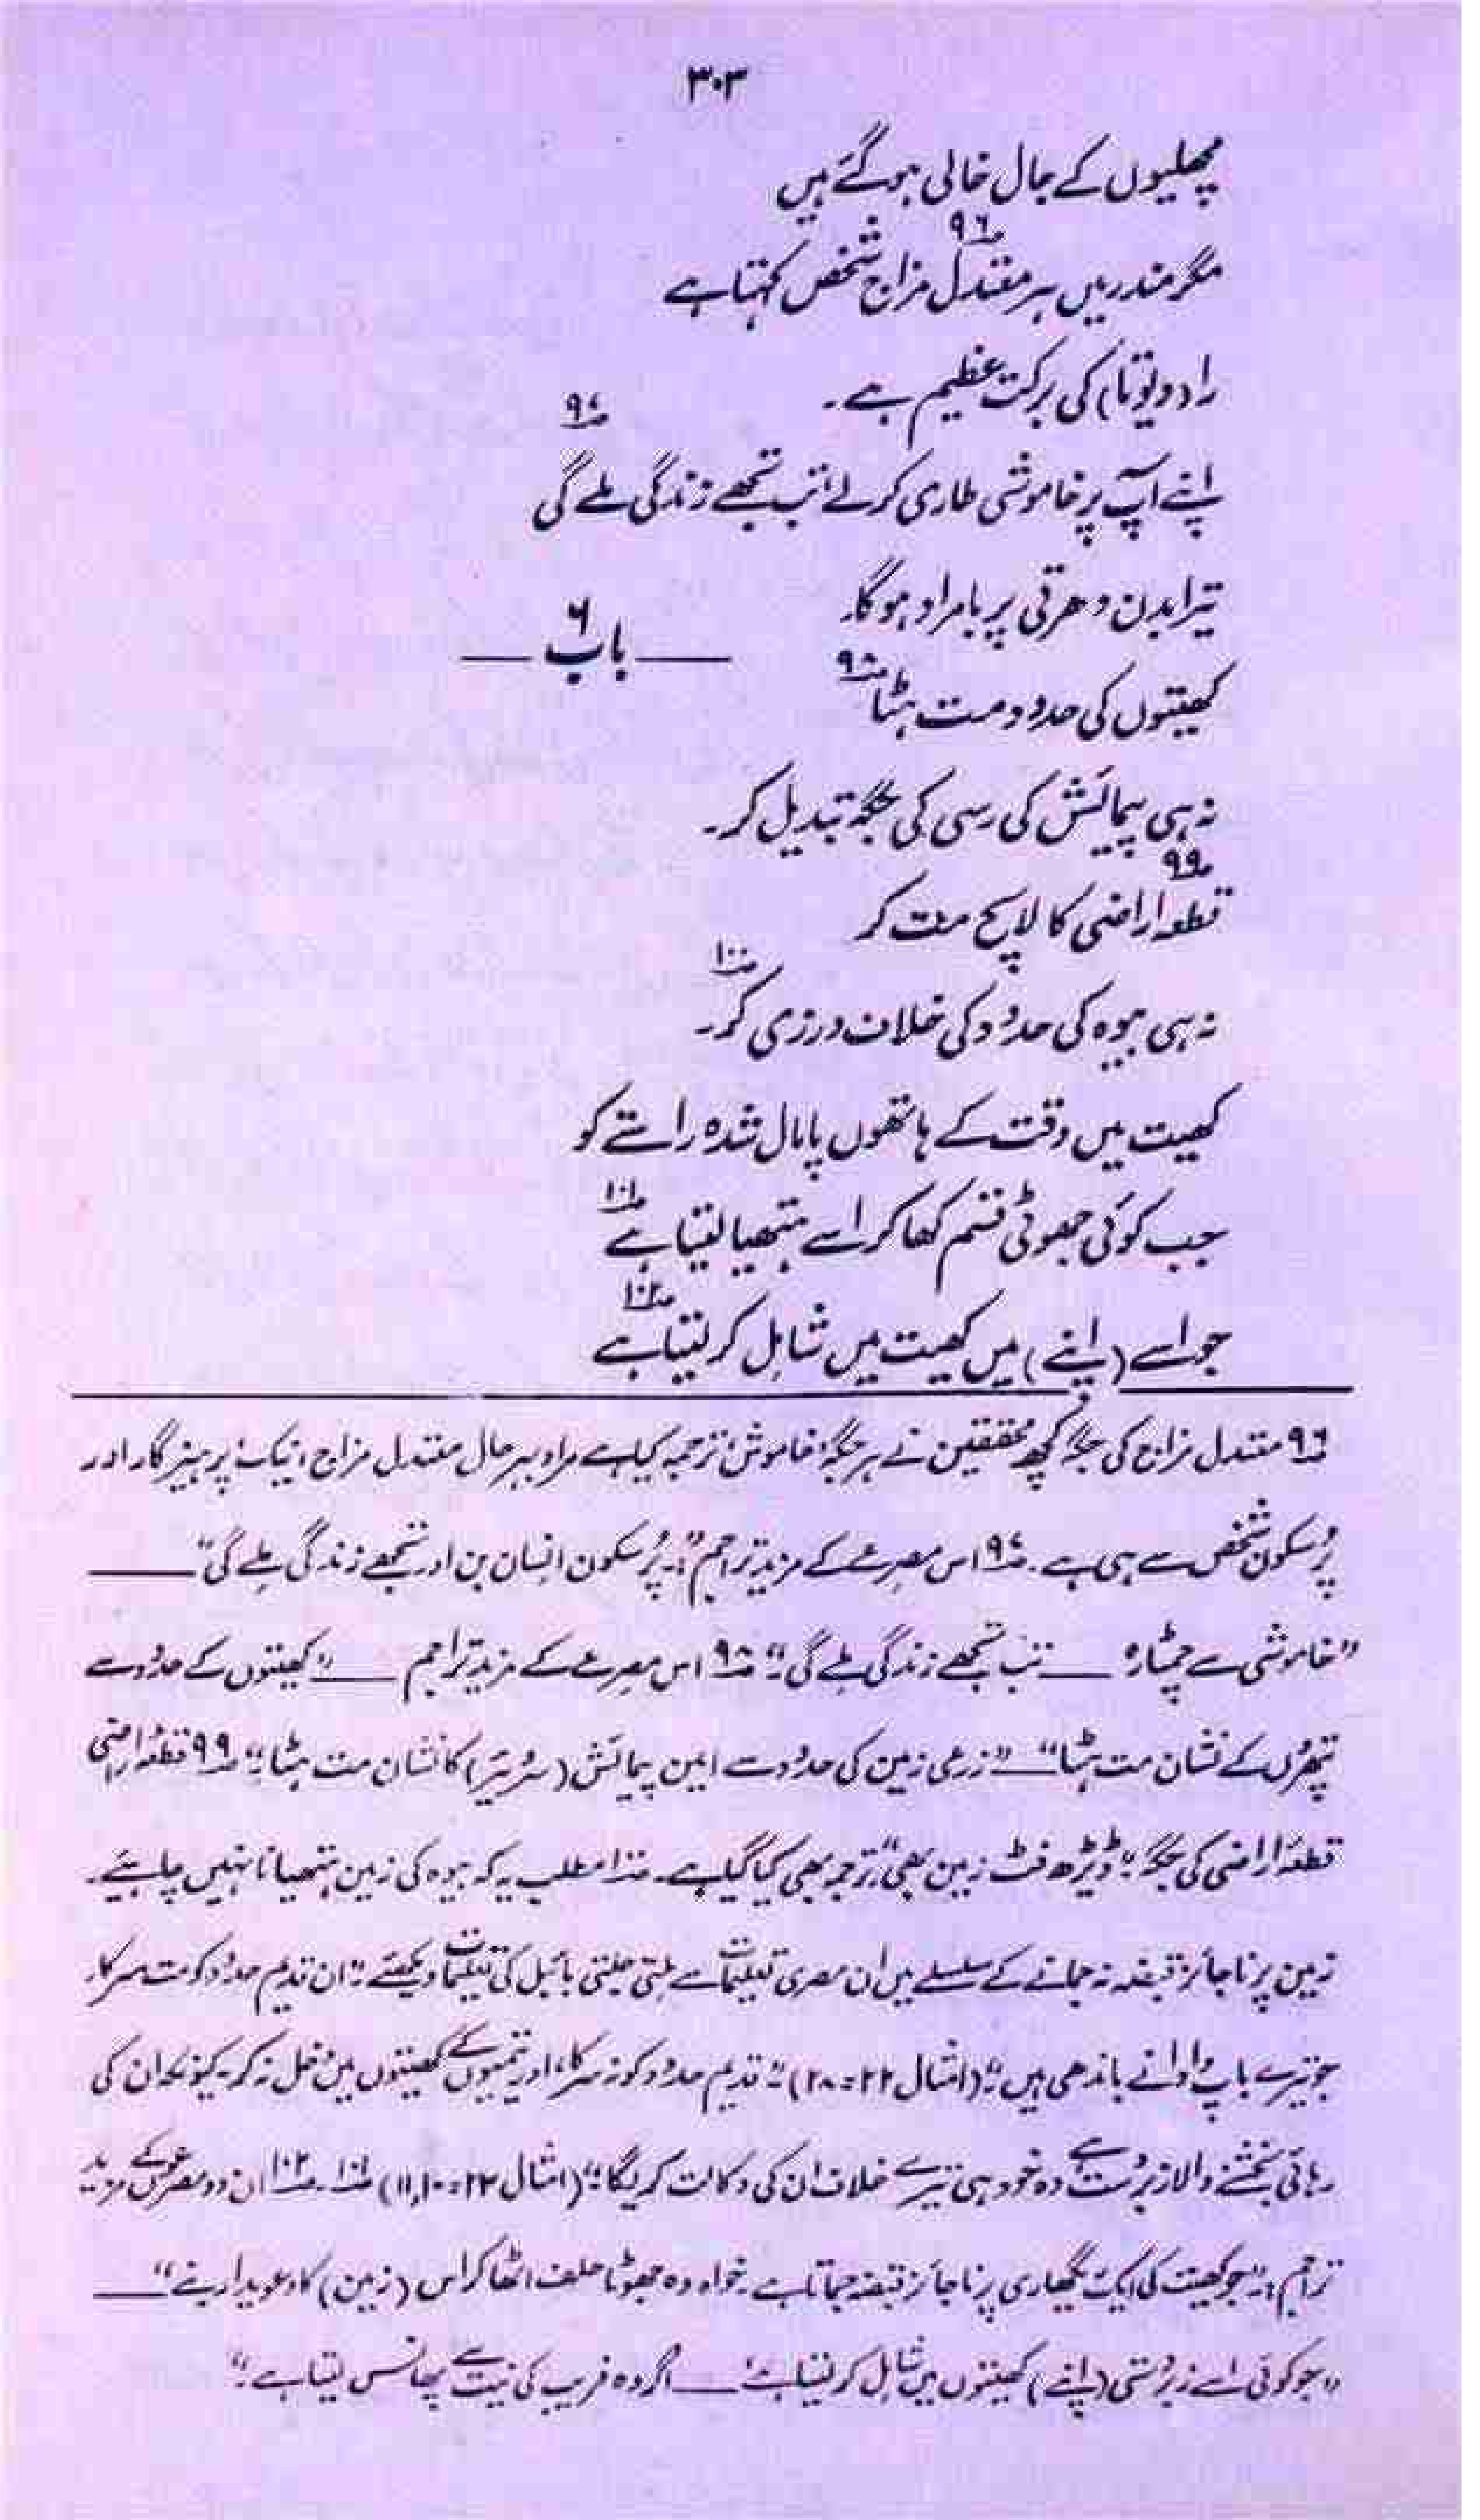 ۳۰۳
مچھلیوں کے جال خالی ہو گئے ہیں
مگر مندر میں ہر معتدل مزاج شخص کہتا ہے ۹۶
را (دیوتا) کی برکت عظیم ہے۔
اپنے آپ پر خاموشی طاری کر لے تب تجھے زندگی ملے گی ۹۷
تیرا بدن دھرتی پر بامراد ہو گا۔
باب ۶
کھیتوں کی حدود مت ہٹا ۹۸
نہ ہی پیمائش کی رسی کی جگہ تبدیل کر۔
قطعہ اراضی کا لالچ مت کر ۹۹
نہ ہی بیوہ کی حدود کی خلاف ورزی کر۔ ۱۰۰
کھیت میں وقت کے ہاتھوں پامال شدہ راستے کو
جب کوئی جھوٹی قسم کھا کر اسے ہتھیا لیتا ہے ۱۰۱
جو اسے (اپنے) میں کھیت میں شامل کر لیتا ہے ۱۰۲
۹۶ معتدل مزاج کی جگہ کچھ محققین نے ہر جگہ خاموش ترجمہ کیا ہے مراد بہر حال معتدل مزاج، نیک، پرہیزگار اور
پُرسکون شخص سے ہی ہے۔ ۹۷ اس مصرعے کے مزید تراجم:۔ "پُرسکون انسان بن اور تجھے زندگی ملے گی" ——
"خاموشی سے چمٹا رہ —— تب تجھے زندگی ملے گی۔" ۹۸ اس مصرعے کے مزید تراجم —— "کھیتوں کے حدود سے
پتھروں کے نشان مت ہٹا" —— "زرعی زمین کی حدود سے امین پیمائش (سُرویَر) کا نشان مت ہٹا۔" ۹۹ قطعۂ اراضی
قطعۂ اراضی کی جگہ "ڈیڑھ فٹ زمین بھی" ترجمہ بھی کیا گیا ہے۔ ۱۰۰ مطلب یہ کہ بیوہ کی زمین ہتھیانا نہیں چاہیئے۔
زمین پر ناجائز قبضہ نہ جمانے کے سلسلے میں ان مصری تعلیمات سے ملتی جلتی بائبل کی تعلیمات دیکھئے:۔ "ان قدیم حدود کو مت سرکا۔
جو تیرے باپ دادا نے باندھی ہیں۔" (امثال ۲۲=۲۸) "قدیم حدود کو نہ سرکا، اور یتیموں کے کھیتوں میں دخل نہ کر۔ کیونکہ ان کی
رہائی بخشنے والا زبردست ہے وہ خود ہی تیرے خلاف ان کی وکالت کریگا۔" (امثال ۲۳=۱۰،۱۱) ۱۰۱۔۱۰۲ ان دو مصرعوں کے مزید
تراجم:۔ "جو کھیت کی ایک کھاری پر ناجائز قبضہ جماتا ہے۔ خواہ وہ جھوٹا حلف اٹھا کر اس (زمین) کا دعویدار بنے" ——
"جو کوئی اسے زبردستی (اپنے) کھیتوں میں شامل کر لیتا ہے" —— اگر وہ فریب کی نیت سے پھانس لیتا ہے۔"